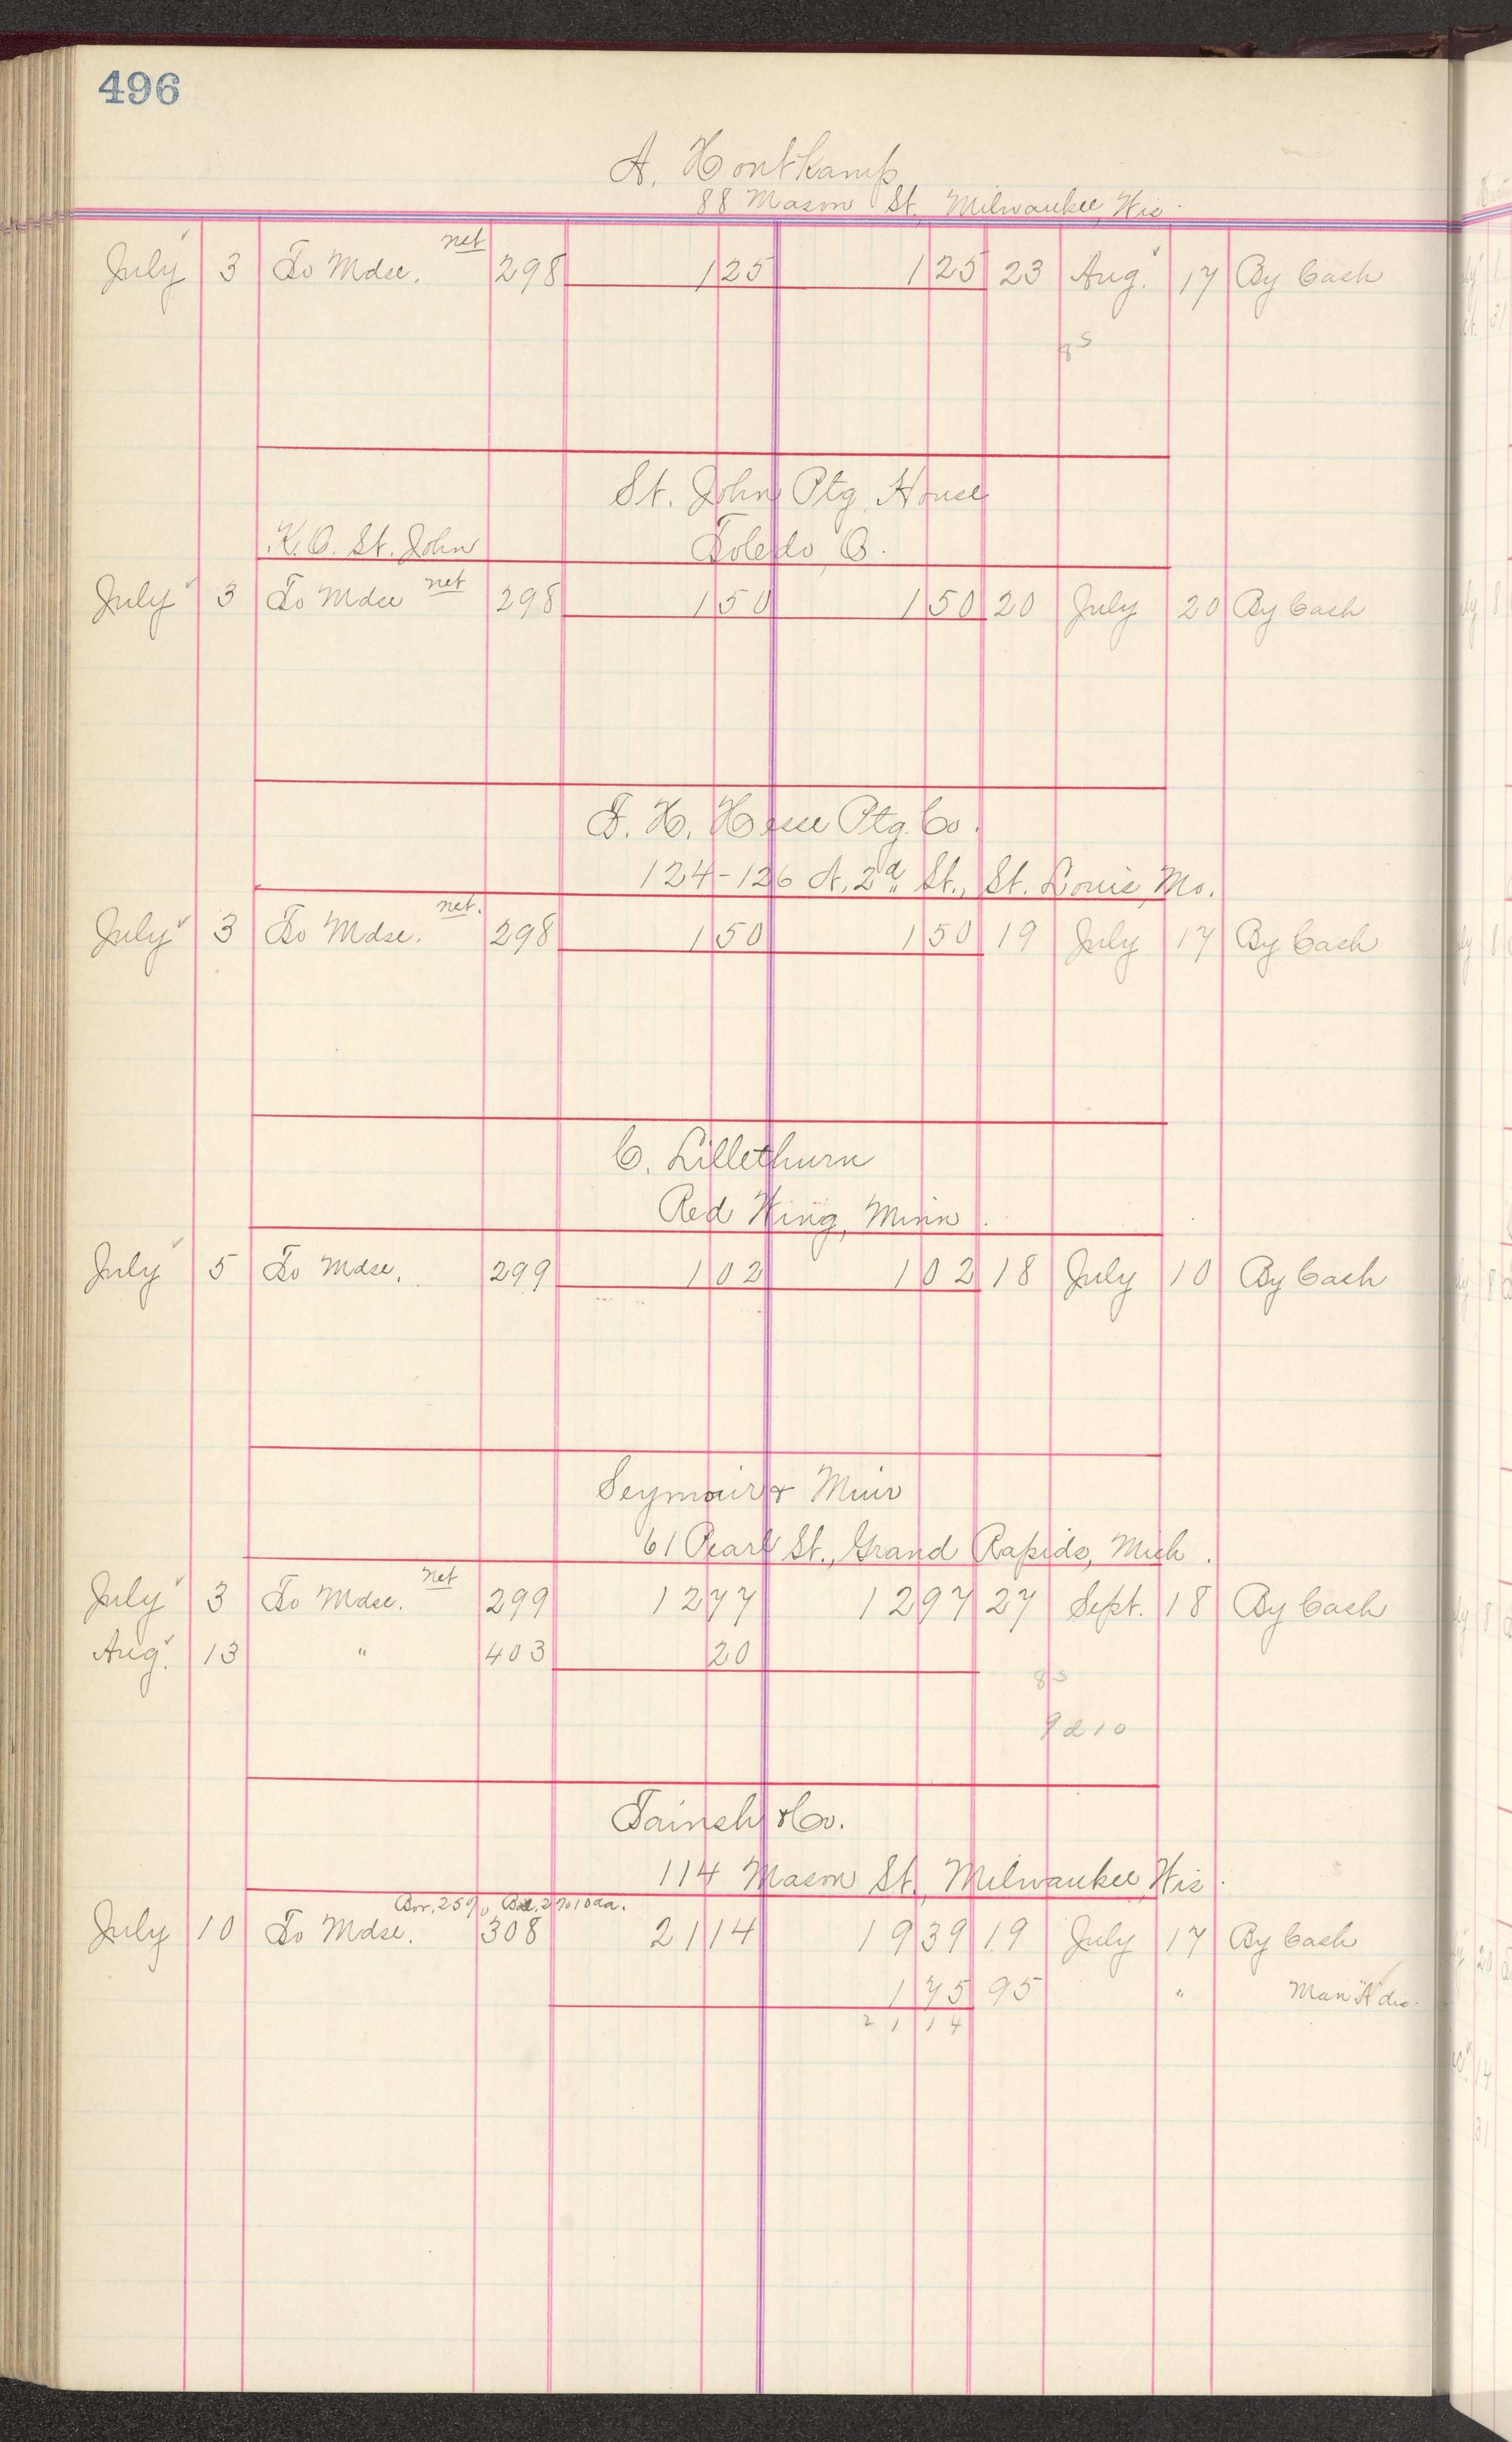 496
A. Hontkamp
88 Mason St. Milwaukee, Wis.
July 3 To Mdse. net 298 1 25 1 25 23 Aug. 17 By Cash
St. John Ptg. House
K. O. St. John Toledo, O.
July 3 To Mdse net 298 1 50 1 50 20 July 20 By Cash
F. H. Hesse Ptg. Co.
124-126 N. 2d St., St. Louis, Mo.
July 3 To Mdse. net. 298 1 50 1 50 19 July 17 By Cash
C. Lillethurn
Red Wing, Minn.
July 5 To Mdse. 299 1 02 1 02 18 July 10 By Cash
Seymour & Muir
61 Pearl St., Grand Rapids, Mich.
July 3 To Mdse. net 299 12 77 12 97 27 Sept. 18 By Cash
Aug. 13 " 403 20
Tainsh & Co.
114 Mason St., Milwaukee, Wis.
Bor. 25%, Bal. 2% 10 da.
July 10 To Mdse. 308 21 14 19 39 19 July 17 By Cash
1 75 95 " Man "A" dis.
21 14